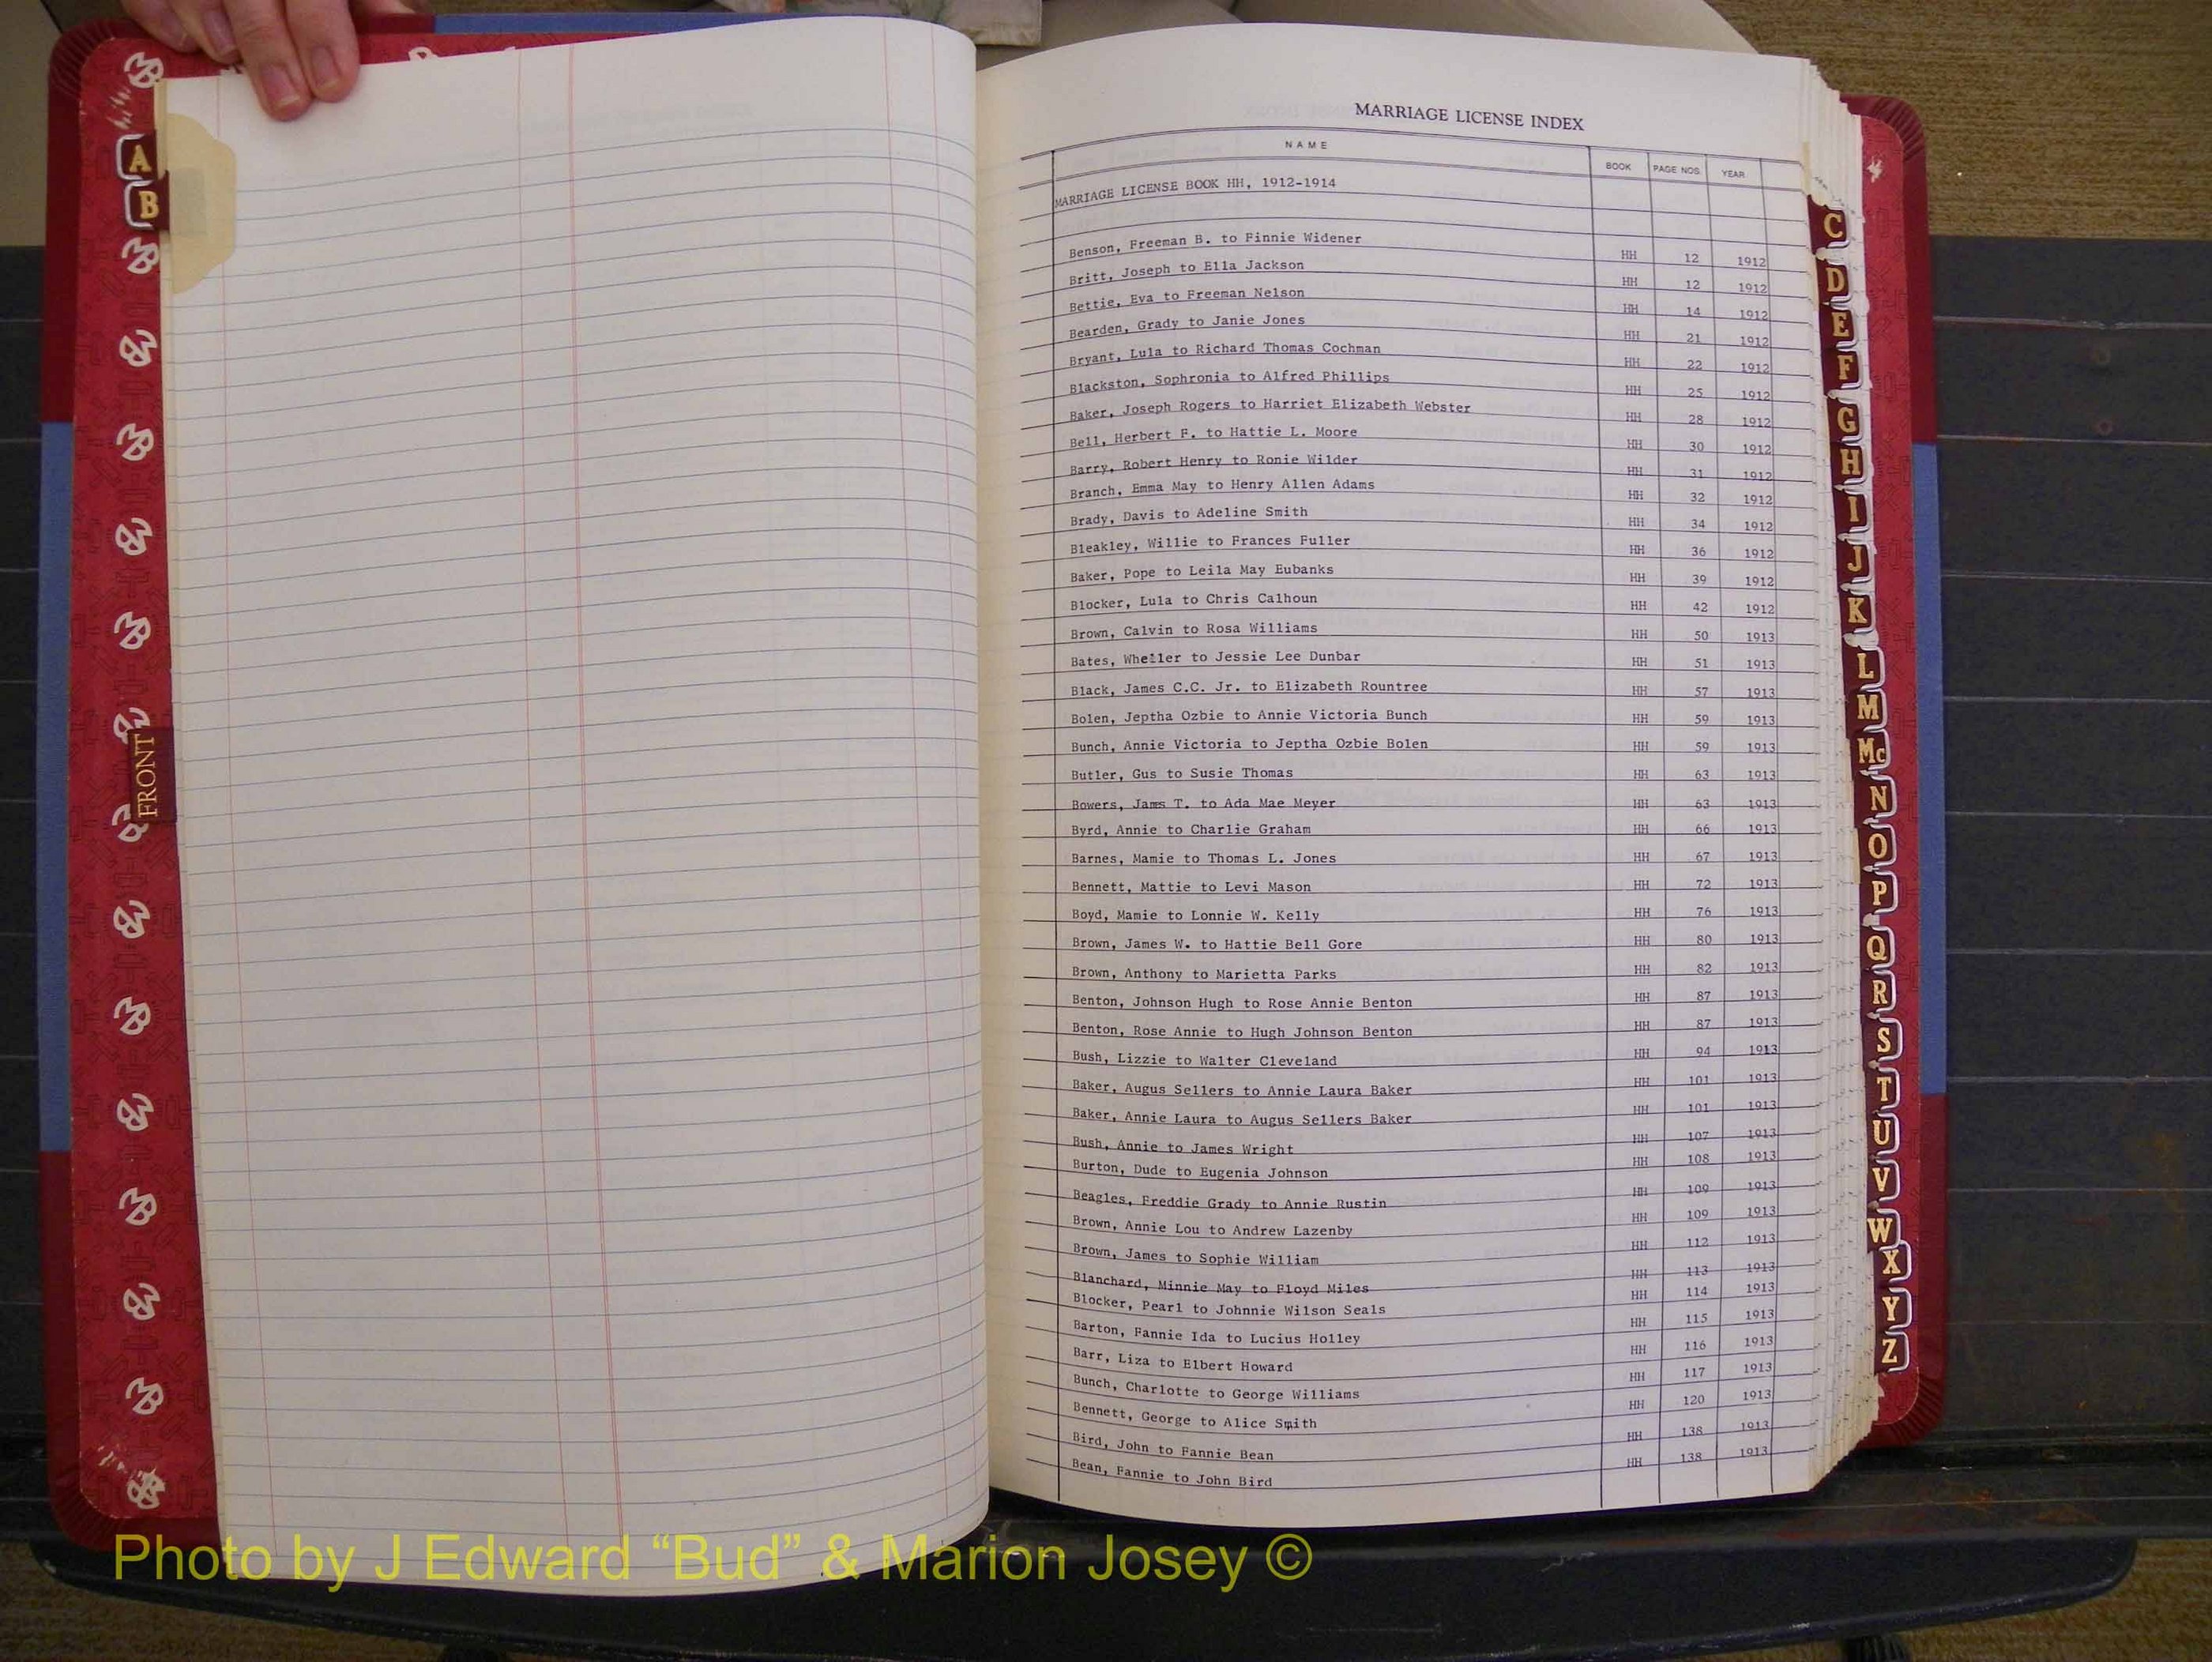 A
B
FRONT
MARRIAGE LICENSE INDEX
NAME BOOK PAGE NOS. YEAR
MARRIAGE LICENSE BOOK HH, 1912-1914
Benson, Freeman B. to Finnie Widener HH 12 1912
Britt, Joseph to Ella Jackson HH 12 1912
Bettie, Eva to Freeman Nelson HH 14 1912
Bearden, Grady to Janie Jones HH 21 1912
Bryant, Lula to Richard Thomas Cochman HH 22 1912
Blackston, Sophronia to Alfred Phillips HH 25 1912
Baker, Joseph Rogers to Harriet Elizabeth Webster HH 28 1912
Bell, Herbert F. to Hattie L. Moore HH 30 1912
Barry, Robert Henry to Ronie Wilder HH 31 1912
Branch, Emma May to Henry Allen Adams HH 32 1912
Brady, Davis to Adeline Smith HH 34 1912
Bleakley, Willie to Frances Fuller HH 36 1912
Baker, Pope to Leila May Eubanks HH 39 1912
Blocker, Lula to Chris Calhoun HH 42 1912
Brown, Calvin to Rosa Williams HH 50 1913
Bates, Wheller to Jessie Lee Dunbar HH 51 1913
Black, James C.C. Jr. to Elizabeth Rountree HH 57 1913
Bolen, Jeptha Ozbie to Annie Victoria Bunch HH 59 1913
Bunch, Annie Victoria to Jeptha Ozbie Bolen HH 59 1913
Butler, Gus to Susie Thomas HH 63 1913
Bowers, Jams T. to Ada Mae Meyer HH 63 1913
Byrd, Annie to Charlie Graham HH 66 1913
Barnes, Mamie to Thomas L. Jones HH 67 1913
Bennett, Mattie to Levi Mason HH 72 1913
Boyd, Mamie to Lonnie W. Kelly HH 76 1913
Brown, James W. to Hattie Bell Gore HH 80 1913
Brown, Anthony to Marietta Parks HH 82 1913
Benton, Johnson Hugh to Rose Annie Benton HH 87 1913
Benton, Rose Annie to Hugh Johnson Benton HH 87 1913
Bush, Lizzie to Walter Cleveland HH 94 1913
Baker, Augus Sellers to Annie Laura Baker HH 101 1913
Baker, Annie Laura to Augus Sellers Baker HH 101 1913
Bush, Annie to James Wright HH 107 1913
Burton, Dude to Eugenia Johnson HH 108 1913
Beagles, Freddie Grady to Annie Rustin HH 109 1913
Brown, Annie Lou to Andrew Lazenby HH 109 1913
Brown, James to Sophie William HH 112 1913
Blanchard, Minnie May to Floyd Miles HH 113 1913
Blocker, Pearl to Johnnie Wilson Seals HH 114 1913
Barton, Fannie Ida to Lucius Holley HH 115 1913
Barr, Liza to Elbert Howard HH 116 1913
Bunch, Charlotte to George Williams HH 117 1913
Bennett, George to Alice Smith HH 120 1913
Bird, John to Fannie Bean HH 138 1913
Bean, Fannie to John Bird HH 138 1913
C
D
E
F
G
H
I
J
K
L
M
Mc
N
O
P
Q
R
S
T
U
V
W
X
Y
Z
Photo by J Edward “Bud” & Marion Josey ©